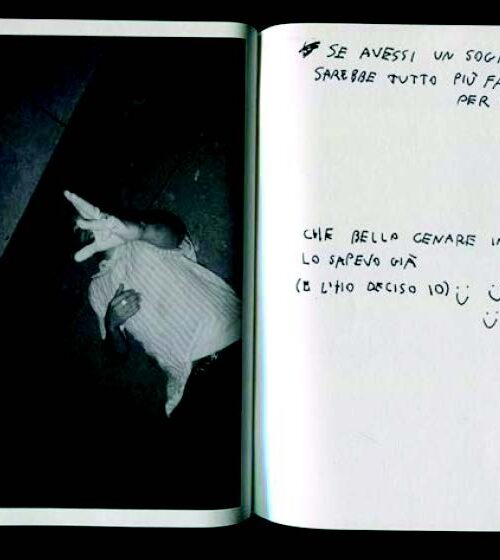 SE AVESSI UN SOG
SAREBBE TUTTO PIÙ FA
PER
CHE BELLO CENARE I
LO SAPEVO GIÀ
(E L'HO DECISO IO)